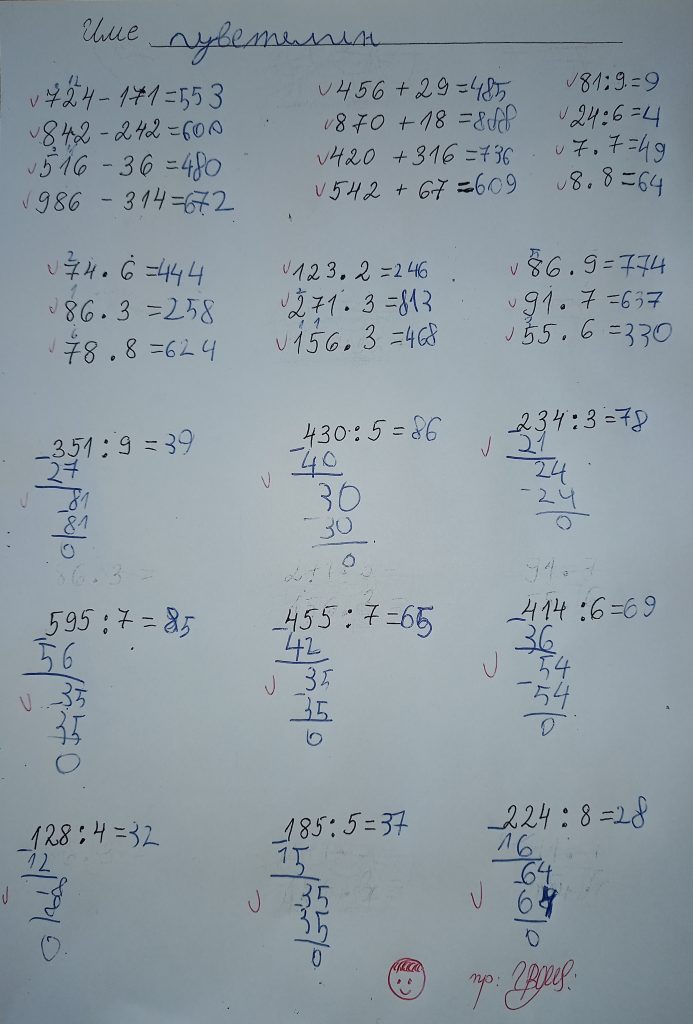 Име цветелин
724 - 171 = 553
842 - 242 = 600
516 - 36 = 480
986 - 314 = 672
456 + 29 = 485
870 + 18 = 888
420 + 316 = 736
542 + 67 = 609
81 : 9 = 9
24 : 6 = 4
7 . 7 = 49
8 . 8 = 64
74 . 6 = 444
86 . 3 = 258
78 . 8 = 624
123 . 2 = 246
271 . 3 = 813
156 . 3 = 468
86 . 9 = 774
91 . 7 = 637
55 . 6 = 330
351 : 9 = 39
27
81
81
0
430 : 5 = 86
40
30
30
0
234 : 3 = 78
21
24
24
0
595 : 7 = 85
56
35
35
0
455 : 7 = 65
42
35
35
0
414 : 6 = 69
36
54
54
0
128 : 4 = 32
12
0
185 : 5 = 37
15
35
35
0
224 : 8 = 28
16
64
64
0
пр: